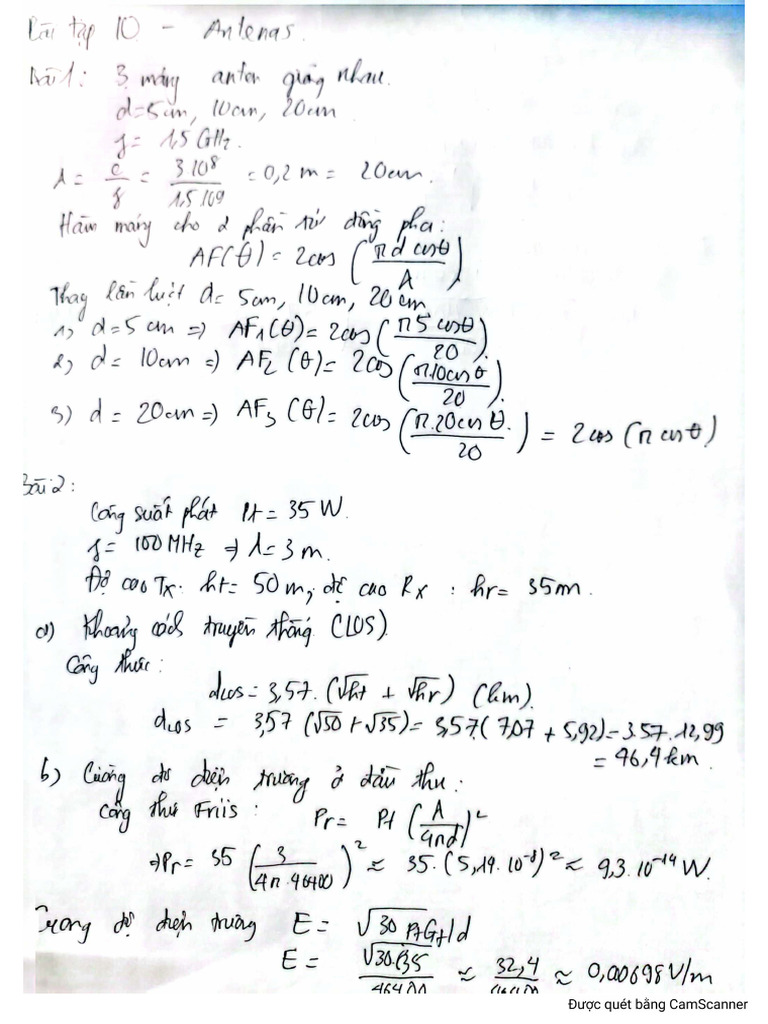 Bài tập 10 - Antenas.
Bài 1: 3 máng anten giống nhau.
d=5cm, 10cm, 20cm
f= 1,5 GHz.
λ = c/f = 3 10^8 / 1,5 10^9 = 0,2 m = 20cm.
Hàm máng cho 2 phần tử đồng pha:
AF(θ) = 2cos (πd cosθ / λ)
Thay lần lượt d= 5cm, 10cm, 20cm
1) d=5cm => AF1(θ)= 2cos (π5 cosθ / 20).
2) d= 10cm => AF2 (θ)= 2cos (π.10cosθ / 20).
3) d = 20cm => AF3 (θ)= 2cos (π.20cosθ. / 20) = 2cos (π cosθ)
Bài 2:
Công suất phát Pt = 35 W.
f= 100 MHz => λ= 3 m.
Độ cao Tx: ht= 50 m, độ cao Rx : hr= 35m.
a) Khoảng cách truyền thẳng (LOS).
Công thức:
dLOS = 3,57. (√ht + √hr) (km).
dLOS = 3,57 (√50 + √35) = 3,57( 7,07 + 5,92) = 3.57.12,99
= 46,4 km.
b) Cường độ điện trường ở đầu thu:
Công thư Friis : Pr = Pt (λ / 4πd)^2
=> Pr = 35 (3 / 4π.46400)^2 ≈ 35. (5,19. 10^-8)^2 ≈ 9,3. 10^-14 W.
Trong độ điện trường E = √30 PtGt/d
E = √30.35 / 46400 ≈ 32,4 / 46400 ≈ 0,00698 V/m
Được quét bằng CamScanner